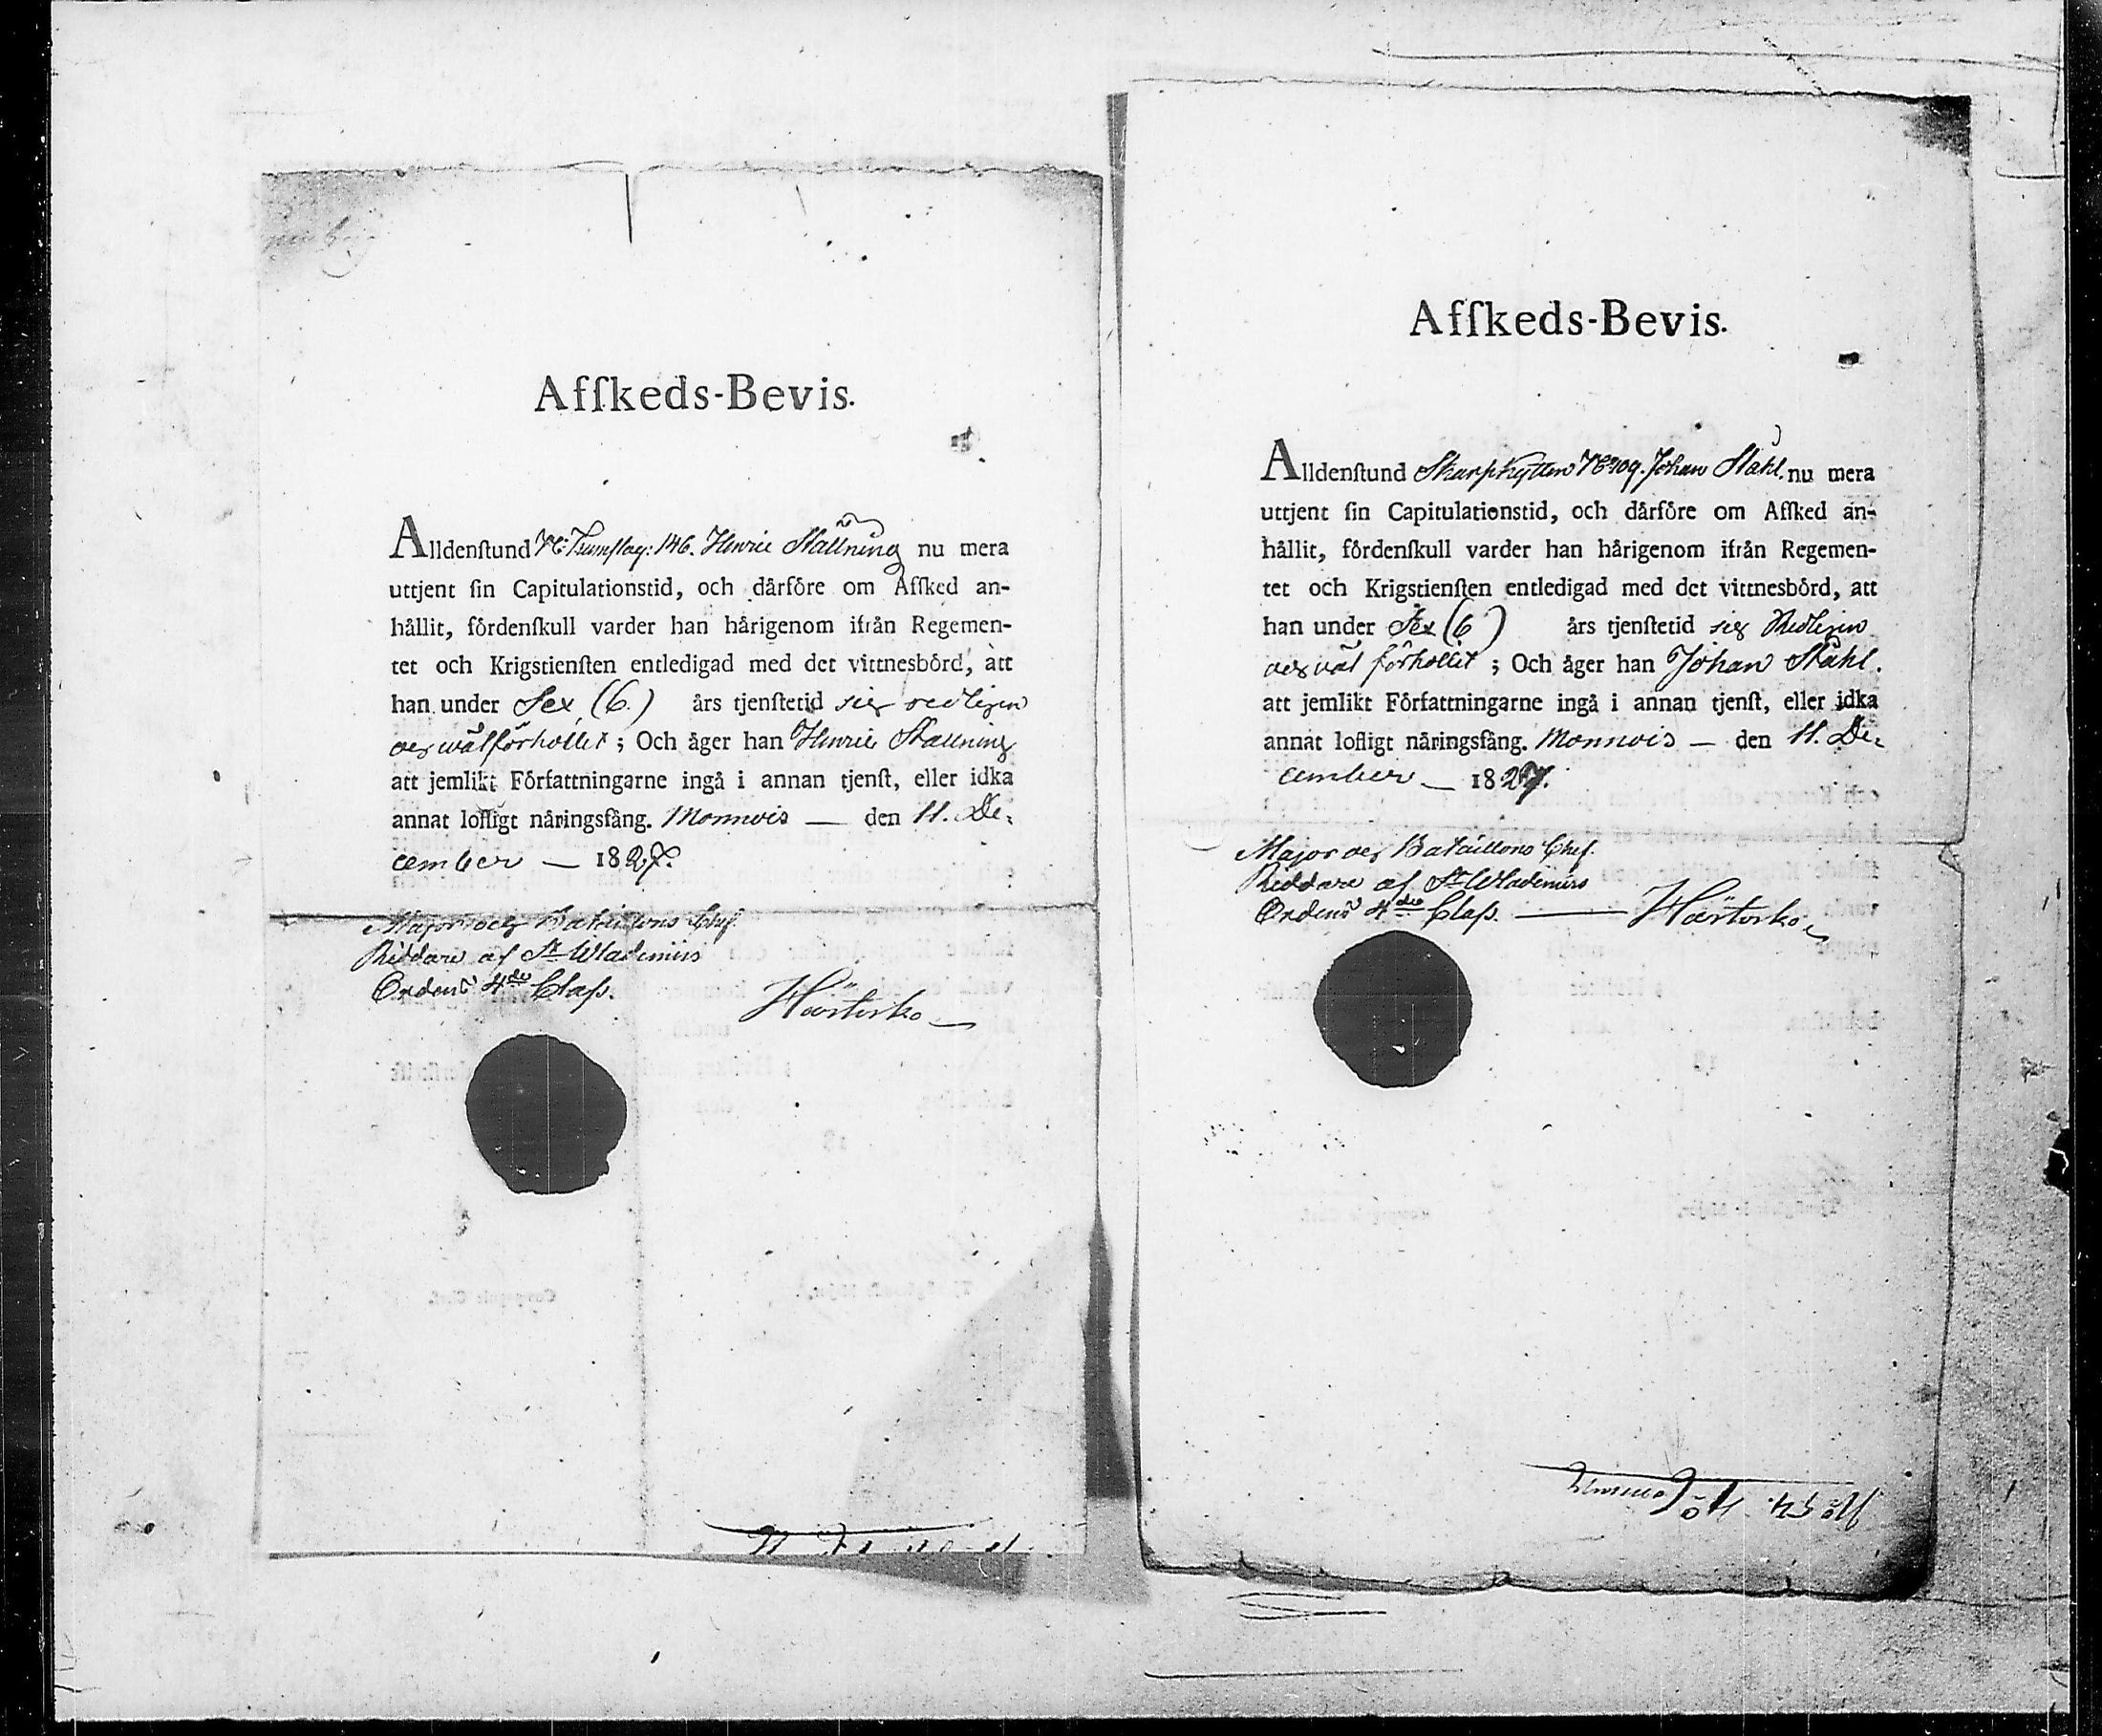 Afſkeds-Bevis.
Alldenſtund V: Trumſlag: 146. Henric Ställning nu mera
uttjent ſin Capitulationstid, och dårföre om Afſked an-
hållit, fördenſkull varder han hårigenom ifrån Regemen-
tet och Krigstienſten entledigad med det vittnesbörd, att
han under Sex (6.) års tjenſtetid sig redligen
och wäl förhollit; Och åger han Henric Ställning
att jemlikt Författningarne ingå i annan tjenſt, eller idka
annat lofligt näringsfång. Monnvis — den 11. De-
cember — 1827.
Major och Bataillons Chef.
Riddare af St Wladimirs
Ordens 4de Claſs.
Härtorko
Afſkeds-Bevis.
Alldenſtund Skarpſkytten No 109. Johan Ståhl. nu mera
uttjent ſin Capitulationstid, och dårföre om Afſked an-
hållit, fördenſkull varder han hårigenom ifrån Regemen-
tet och Krigstienſten entledigad med det vittnesbörd, att
han under Sex (6) års tjenſtetid sig Redligen
och väl förhollit; Och åger han Johan Ståhl.
att jemlikt Författningarne ingå i annan tjenſt, eller idka
annat lofligt näringsfång. Monnvis — den 11. De-
cember — 1827.
Major och Bataillons Chef.
Riddare af St Wladimirs
Ordens 4de Claſs. — Härtorko